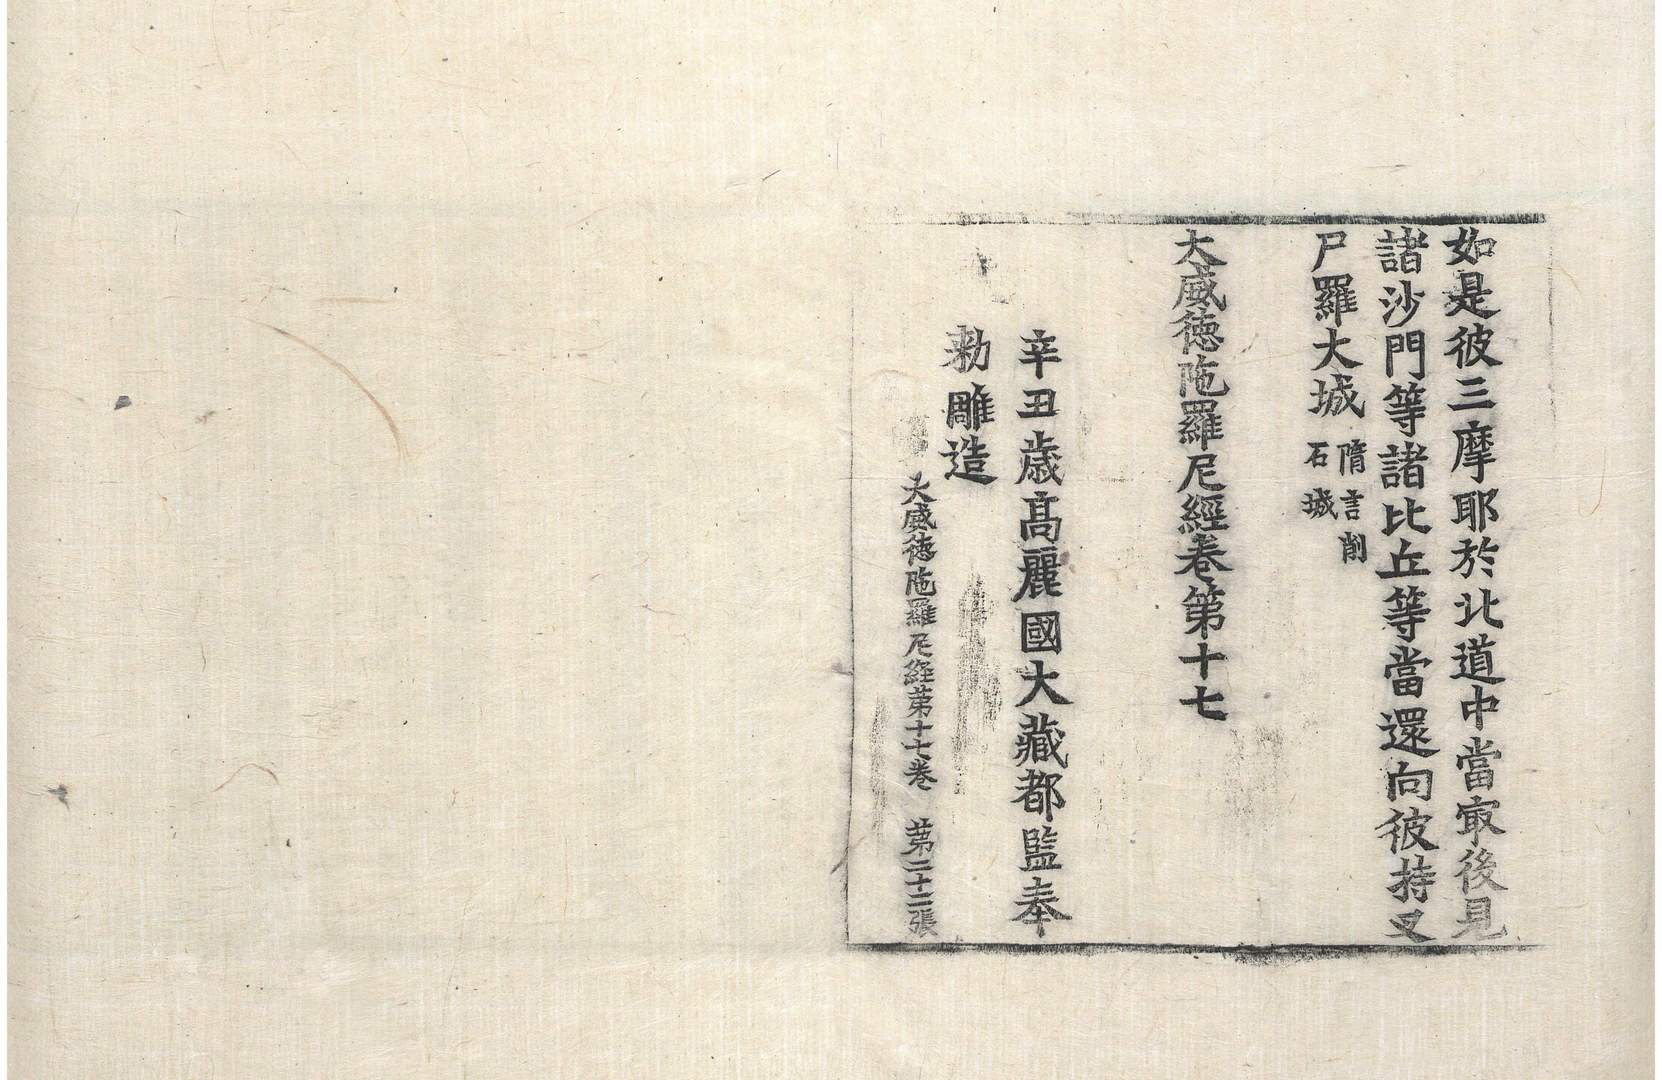 如是彼三摩耶於北道中當㝡後見
諸沙門等諸比丘等當還向彼持叉
尸羅大城隋言削石城
大威德陁羅尼經卷第十七
辛丑歲高麗國大藏都監奉
勑雕造
大威德陁羅尼經第十七卷 第二十二張